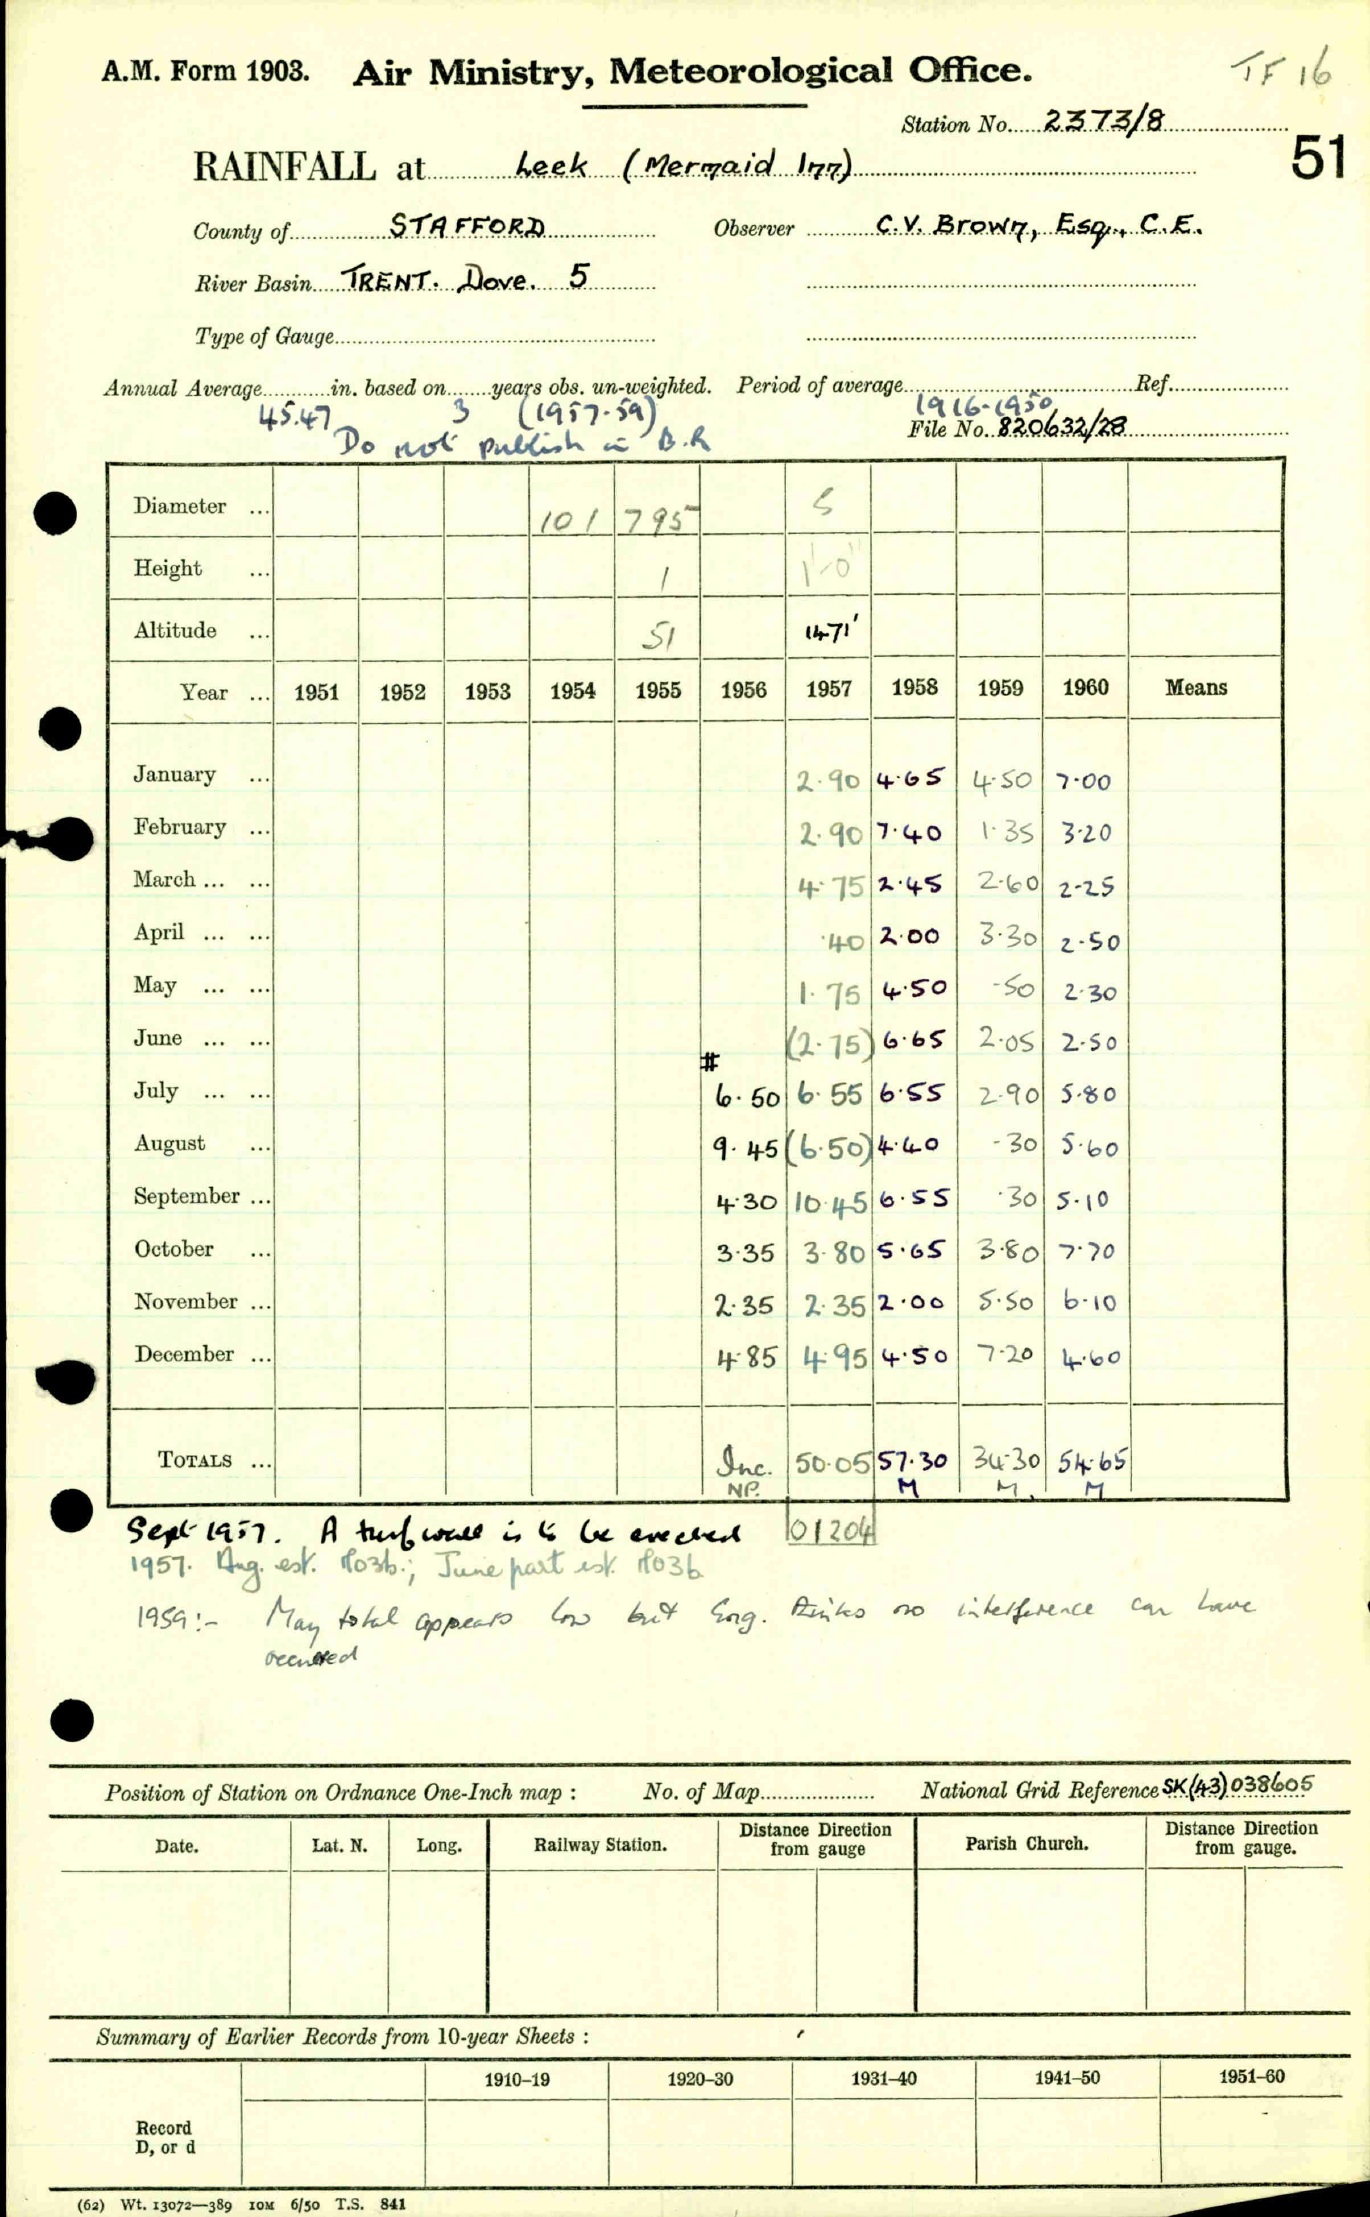 TF 16
A.M. Form 1903. Air Ministry, Meteorological Office.
Station No. 2373/8
51
RAINFALL at Leek (Mermaid Inn)
County of STAFFORD Observer C.V. Brown, Esq., C.E.
River Basin TRENT. Dove. 5
Type of Gauge
Annual Average in. based on years obs. un-weighted. Period of average Ref.
45.47 3 (1957-59) 1916-1950
Do not publish in B.R
File No. 820632/28
Diameter ... 101 795 5
Height ... 1 1'-0"
Altitude ... 51 1471'
Year ... 1951 1952 1953 1954 1955 1956 1957 1958 1959 1960 Means
January ... 2.90 4.65 4.50 7.00
February ... 2.90 7.40 1.35 3.20
March ... ... 4.75 2.45 2.60 2.25
April ... ... .40 2.00 3.30 2.50
May ... ... 1.75 4.50 .50 2.30
June ... ... (2.75) 6.65 2.05 2.50
#
July ... ... 6.50 6.55 6.55 2.90 5.80
August ... 9.45 (6.50) 4.40 .30 5.60
September ... 4.30 10.45 6.55 .30 5.10
October ... 3.35 3.80 5.65 3.80 7.70
November ... 2.35 2.35 2.00 5.50 6.10
December ... 4.85 4.95 4.50 7.20 4.60
TOTALS ... Inc. 50.05 57.30 34.30 54.65
NP. M M. M
Sept 1957. A turf wall is to be erected 01204
1957. Aug. est. M03b.; June part est. M03b
1959:- May total appears low but Eng. thinks no interference can have
occurred
Position of Station on Ordnance One-Inch map : No. of Map National Grid Reference SK(43)038605
Date. Lat. N. Long. Railway Station. Distance Direction from gauge Parish Church. Distance Direction from gauge.
Summary of Earlier Records from 10-year Sheets :
1910–19 1920–30 1931–40 1941–50 1951–60
Record
D, or d
(62) Wt. 13072—389 10M 6/50 T.S. 841